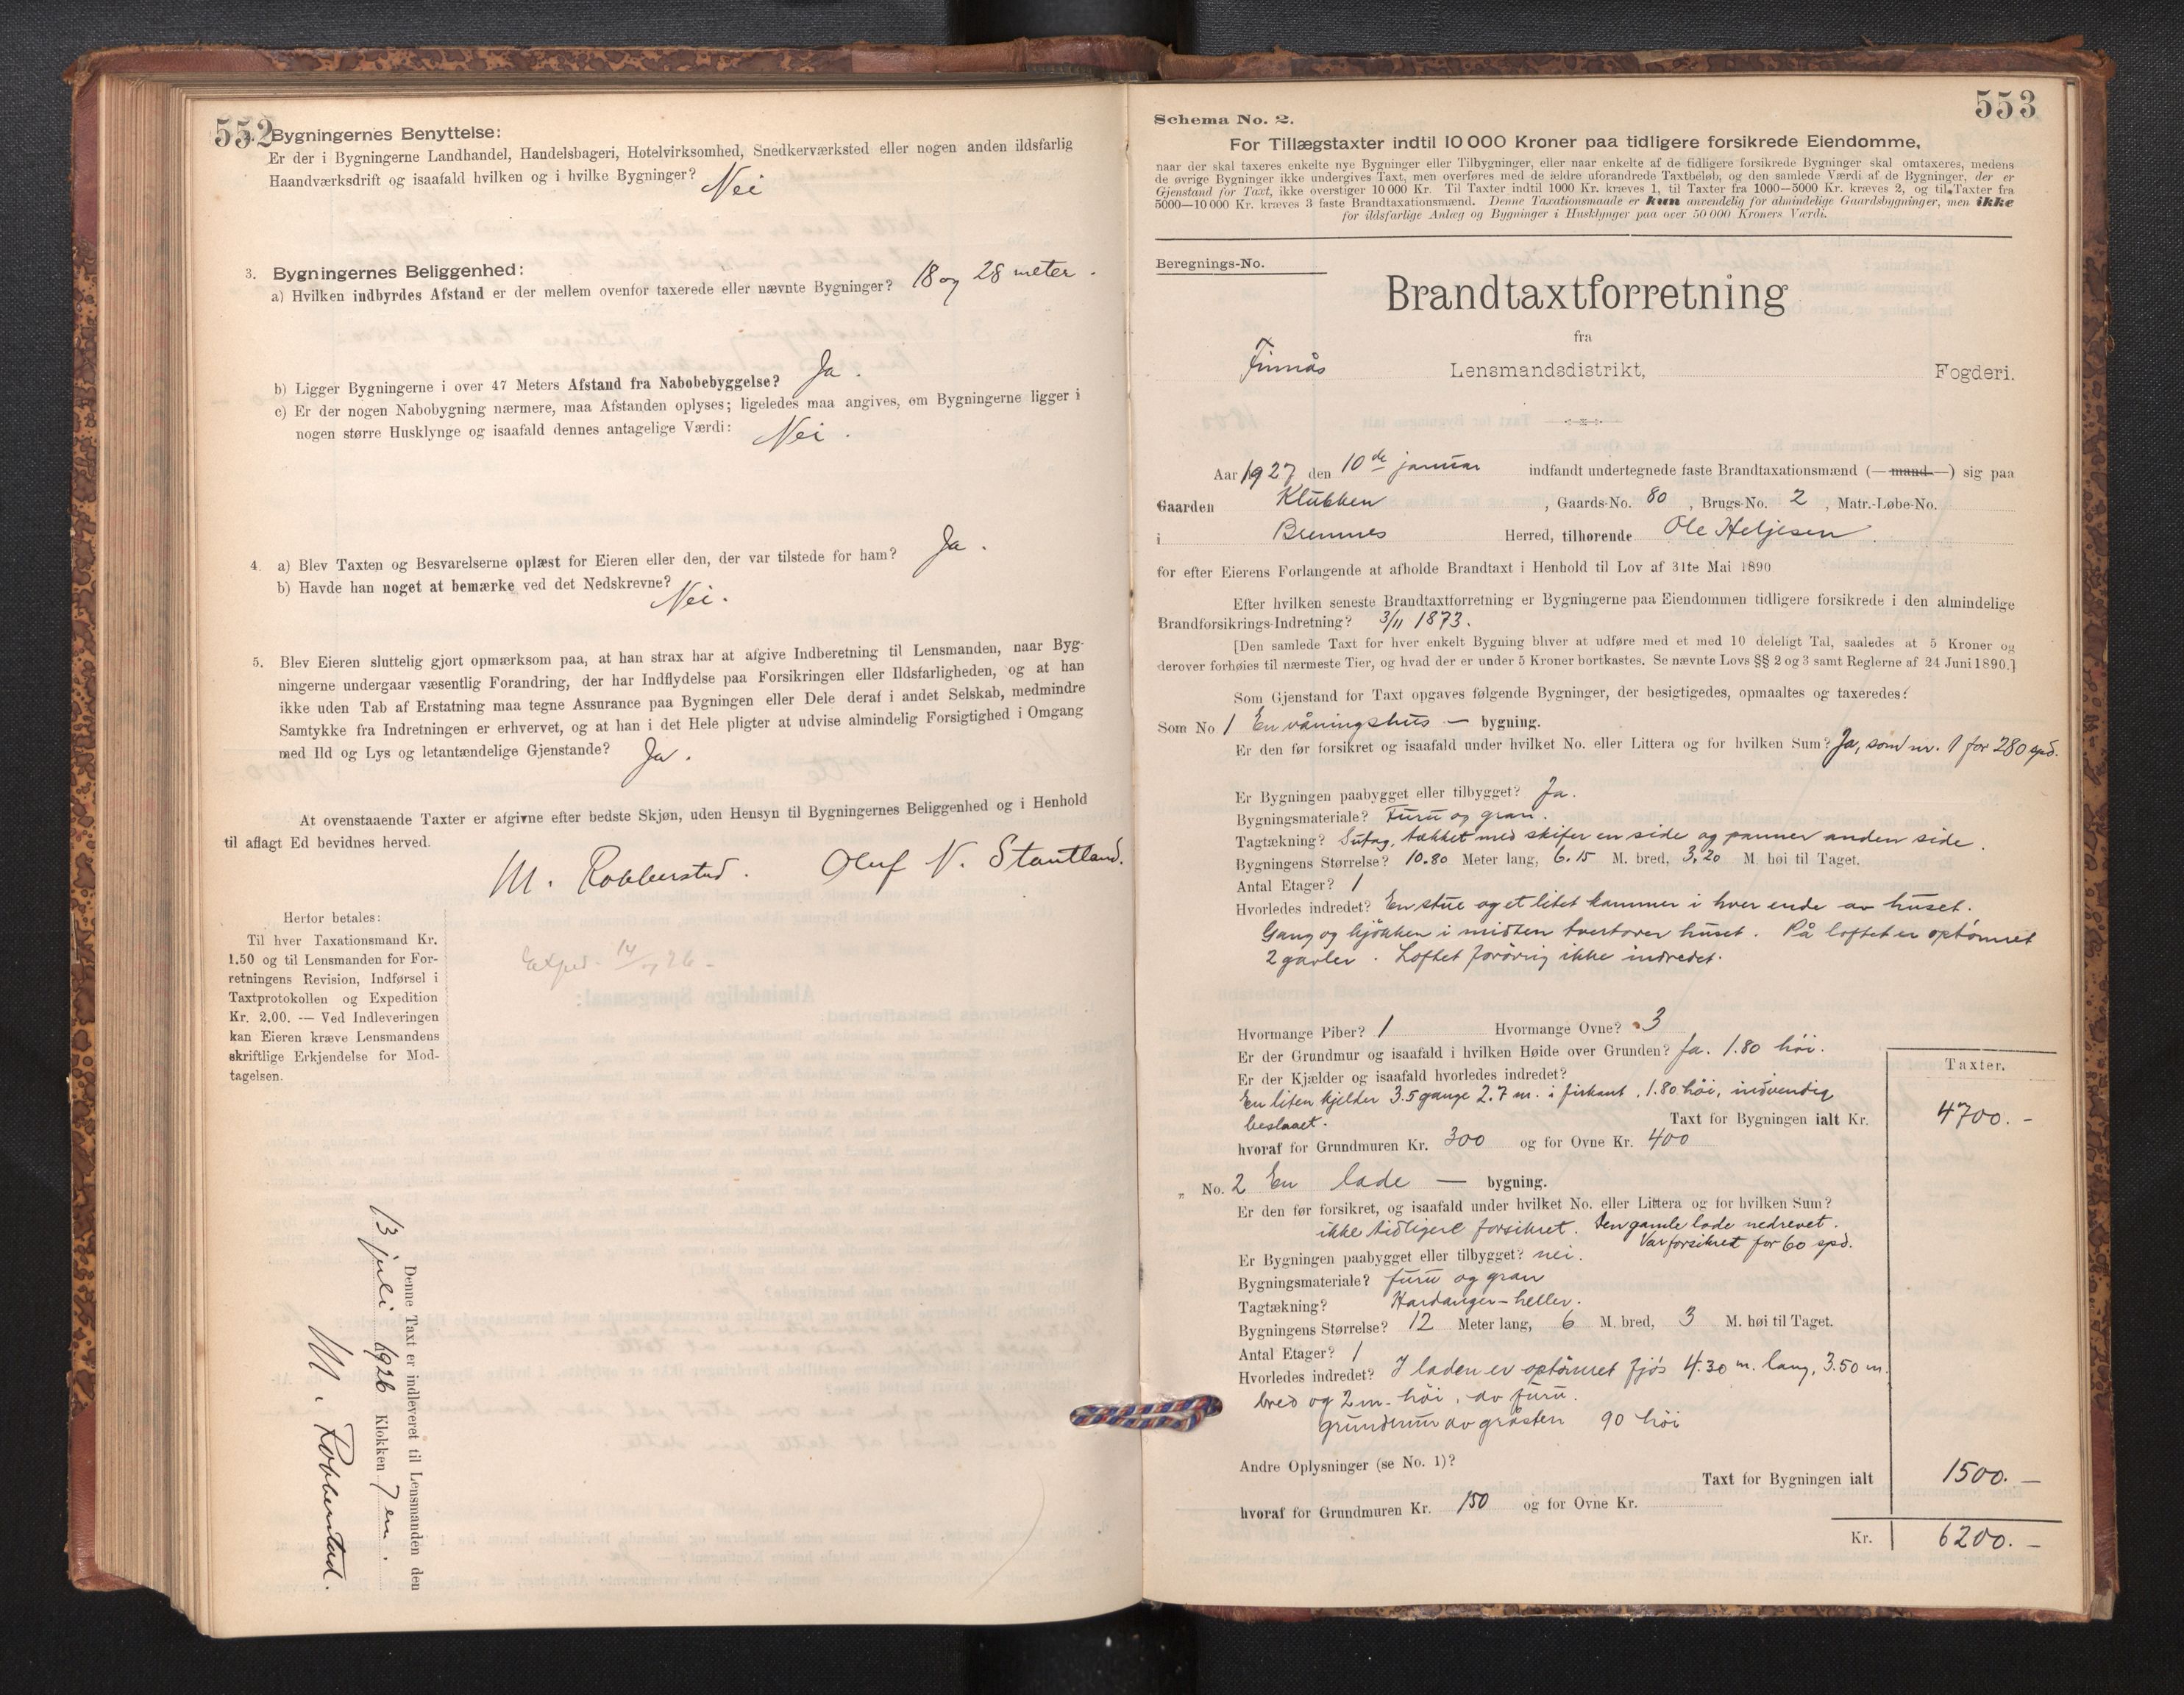 552
Bygningernes Benyttelse:
Er der i Bygningerne Landhandel, Handelsbageri, Hotelvirksomhed, Snedkerværksted eller nogen anden ildsfarlig
Haandværksdrift og isaafald hvilken og i hvilke Bygninger? Nei
3. Bygningernes Beliggenhed:
a) Hvilken indbyrdes Afstand er der mellem ovenfor taxerede eller nævnte Bygninger? 18 og 28 meter.
b) Ligger Bygningerne i over 47 Meters Afstand fra Nabobebyggelse? Ja.
c) Er der nogen Nabobygning nærmere, maa Afstanden oplyses; ligeledes maa angives, om Bygningerne ligger i
nogen større Husklynge og isaafald dennes antagelige Værdi: Nei.
4. a) Blev Taxten og Besvarelserne oplæst for Eieren eller den, der var tilstede for ham? Ja.
b) Havde han noget at bemærke ved det Nedskrevne? Nei.
5. Blev Eieren sluttelig gjort opmærksom paa, at han strax har at afgive Indberetning til Lensmanden, naar Byg-
ningerne undergaar væsentlig Forandring, der har Indflydelse paa Forsikringen eller Ildsfarligheden, og at han
ikke uden Tab af Erstatning maa tegne Assurance paa Bygningen eller Dele deraf i andet Selskab, medmindre
Samtykke fra Indretningen er erhvervet, og at han i det Hele pligter at udvise almindelig Forsigtighed i Omgang
med Ild og Lys og letantændelige Gjenstande? Ja.
At ovenstaaende Taxter er afgivne efter bedste Skjøn, uden Hensyn til Bygningernes Beliggenhed og i Henhold
til aflagt Ed bevidnes herved.
M. Robberstad. Oluf N. Stautland.
Herfor betales:
Til hver Taxationsmand Kr.
1.50 og til Lensmanden for For-
retningens Revision, Indførsel i
Taxtprotokollen og Expedition
Kr. 2.00. — Ved Indleveringen
kan Eieren kræve Lensmandens
skriftlige Erkjendelse for Mod-
tagelsen.
Exped. 14/7 26 -
Denne Taxt er indleveret til Lensmanden den
13 juli 1926 Klokken 7 em.
M. Robberstad.
553
Schema No. 2.
For Tillægstaxter indtil 10 000 Kroner paa tidligere forsikrede Eiendomme,
naar der skal taxeres enkelte nye Bygninger eller Tilbygninger, eller naar enkelte af de tidligere forsikrede Bygninger skal omtaxeres, medens
de øvrige Bygninger ikke undergives Taxt, men overføres med de ældre uforandrede Taxtbeløb, og den samlede Værdi af de Bygninger, der er
Gjenstand for Taxt, ikke overstiger 10 000 Kr. Til Taxter indtil 1000 Kr. kræves 1, til Taxter fra 1000—5000 Kr. kræves 2, og til Taxter fra
5000—10 000 Kr. kræves 3 faste Brandtaxationsmænd. Denne Taxationsmaade er kun anvendelig for almindelige Gaardsbygninger, men ikke
for ildsfarlige Anlæg og Bygninger i Husklynger paa over 50 000 Kroners Værdi.
Beregnings-No.
Brandtaxtforretning
fra
Finnås Lensmandsdistrikt, Fogderi.
Aar 1927 den 10de januar indfandt undertegnede faste Brandtaxationsmænd (— mand —) sig paa
Gaarden Klubben, Gaards-No. 80, Brugs-No. 2, Matr.-Løbe-No.
i Bremnes Herred, tilhørende Ole Heljesen
for efter Eierens Forlangende at afholde Brandtaxt i Henhold til Lov af 31te Mai 1890
Efter hvilken seneste Brandtaxtforretning er Bygningerne paa Eiendommen tidligere forsikrede i den almindelige
Brandforsikrings-Indretning? 3/11 1873.
[Den samlede Taxt for hver enkelt Bygning bliver at udføre med et med 10 deleligt Tal, saaledes at 5 Kroner og
derover forhøies til nærmeste Tier, og hvad der er under 5 Kroner bortkastes. Se nævnte Lovs §§ 2 og 3 samt Reglerne af 24 Juni 1890.]
Som Gjenstand for Taxt opgaves følgende Bygninger, der besigtigedes, opmaaltes og taxeredes:
Som No 1 En våningshus — bygning.
Er den før forsikret og isaafald under hvilket No. eller Littera og for hvilken Sum? Ja, som nr. 1 for 280 spd.
Er Bygningen paabygget eller tilbygget? Ja.
Bygningsmateriale? Furu og gran.
Tagtækning? Sutag, tækket med skifer en side og panner anden side.
Bygningens Størrelse? 10.80 Meter lang, 6.15 M. bred, 3,20 M. høi til Taget.
Antal Etager? 1
Hvorledes indredet? En stue og et litet kammer i hver ende av huset.
Gang og kjøkken i midten tvertover huset. På loftet er optømret
2 gavler. Loftet forøvrig ikke indredet.
Hvormange Piber? 1 Hvormange Ovne? 3
Er der Grundmur og isaafald i hvilken Høide over Grunden? Ja. 1.80 høi.
Er der Kjælder og isaafald hvorledes indredet?
En liten kjelder 3.5 gange 2.7 m. i firkant, 1.80 høi, indvendig
beslaaet.
Taxter.
Taxt for Bygningen ialt Kr. 4700.-
hvoraf for Grundmuren Kr. 300 og for Ovne Kr. 400
„ No. 2 En lade — bygning.
Er den før forsikret, og isaafald under hvilket No. eller Littera og for hvilken Sum?
ikke tidligere forsikret. Den gamle lade nedrevet.
Var forsikret for 60 spd.
Er Bygningen paabygget eller tilbygget? nei.
Bygningsmateriale? furu og gran
Tagtækning? Hardanger-heller.
Bygningens Størrelse? 12 Meter lang, 6 M. bred, 3 M. høi til Taget.
Antal Etager? 1
Hvorledes indredet? I laden er optømret fjøs 4.30 m. lang, 3.50 m.
bred og 2 m. høi, av furu.
grundmur av gråsten 90 høi
Andre Oplysninger (se No. 1)?
Taxt for Bygningen ialt 1500.-
hvoraf for Grundmuren Kr. 150 og for Ovne Kr.
Kr. 6200.-